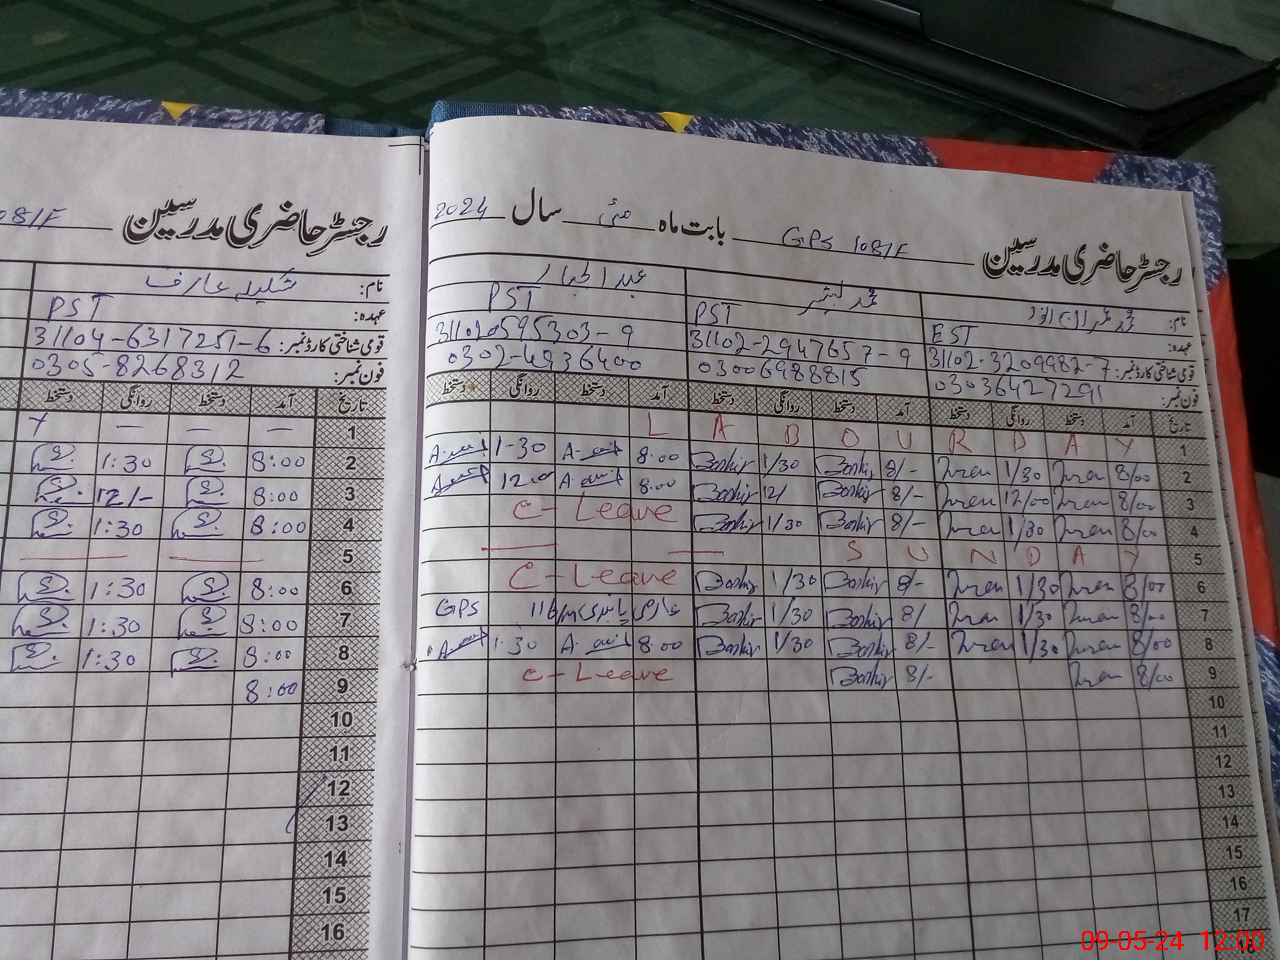 رجسٹر حاضری مدرسین GPS 108/F بابت ماہ مئی سال 2024
نام: عبدالجبار
عہدہ: EST PST PST
قومی شناختی کارڈ نمبر: 31102-3209982-7 31102-2947657-9 311020595303-9
فون نمبر: 03036427291 03006988815 0302-4936400
تاریخ آمد دستخط روانگی دستخط آمد دستخط روانگی دستخط آمد دستخط روانگی دستخط
1 L A B O U R D A Y
2 8/00 Imran 1/30 Imran 8/- Bashir 1/30 Bashir 8:00 1-30
3 8/00 Imran 12/00 Imran 8/- Bashir 12/ Bashir 8:00 12:00
4 8/00 Imran 1/30 Imran 8/- Bashir 1/30 Bashir C-Leave
5 S U N D A Y
6 8/00 Imran 1/30 Imran 8/- Bashir 1/30 Bashir C-Leave
7 8/00 Imran 1/30 Imran 8/ Bashir 1/30 Bashir GPS
8 8/00 Imran 1/30 Imran 8/- Bashir 1/30 Bashir 8:00 1:30
9 8/00 Imran 8/- Bashir C-Leave
10
11
12
13
14
15
16
17
رجسٹر حاضری مدرسین 108/F
نام: شکیل عارف
عہدہ: PST
قومی شناختی کارڈ نمبر: 31104-6317251-6
فون نمبر: 0305-8268312
تاریخ آمد دستخط روانگی دستخط
1
2 8:00 1:30
3 8:00 12/-
4 8:00 1:30
5
6 8:00 1:30
7 8:00 1:30
8 8:00 1:30
9 8:00
10
11
12
13
14
15
16
09-05-24 12:00